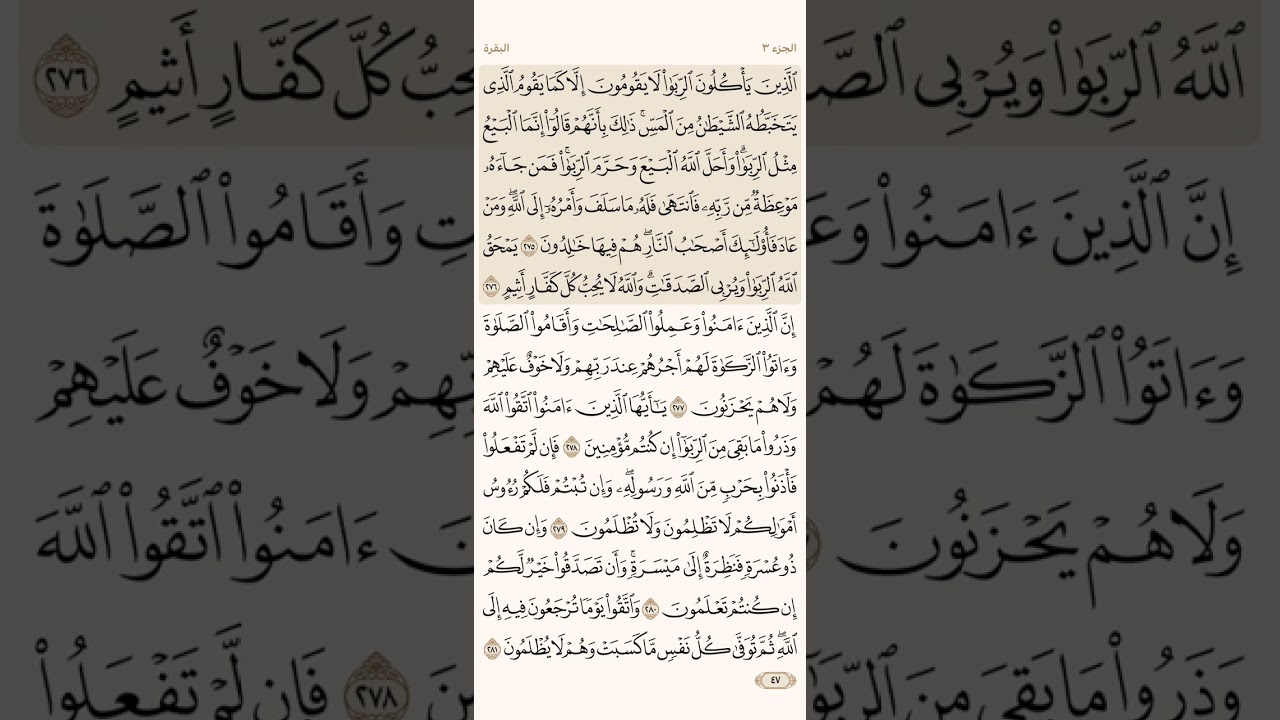 الجزء ٣
البقرة
ٱلَّذِينَ يَأۡكُلُونَ ٱلرِّبَوٰاْ لَا يَقُومُونَ إِلَّا كَمَا يَقُومُ ٱلَّذِي
يَتَخَبَّطُهُ ٱلشَّيۡطَٰنُ مِنَ ٱلۡمَسِّۚ ذَٰلِكَ بِأَنَّهُمۡ قَالُوٓاْ إِنَّمَا ٱلۡبَيۡعُ
مِثۡلُ ٱلرِّبَوٰاْۗ وَأَحَلَّ ٱللَّهُ ٱلۡبَيۡعَ وَحَرَّمَ ٱلرِّبَوٰاْۚ فَمَن جَآءَهُۥ
مَوۡعِظَةٞ مِّن رَّبِّهِۦ فَٱنتَهَىٰ فَلَهُۥ مَا سَلَفَ وَأَمۡرُهُۥٓ إِلَى ٱللَّهِۖ وَمَنۡ
عَادَ فَأُوْلَٰٓئِكَ أَصۡحَٰبُ ٱلنَّارِۖ هُمۡ فِيهَا خَٰلِدُونَ ٢٧٥ يَمۡحَقُ
ٱللَّهُ ٱلرِّبَوٰاْ وَيُرۡبِي ٱلصَّدَقَٰتِۗ وَٱللَّهُ لَا يُحِبُّ كُلَّ كَفَّارٍ أَثِيمٍ ٢٧٦
إِنَّ ٱلَّذِينَ ءَامَنُواْ وَعَمِلُواْ ٱلصَّٰلِحَٰتِ وَأَقَامُواْ ٱلصَّلَوٰةَ
وَءَاتَوُاْ ٱلزَّكَوٰةَ لَهُمۡ أَجۡرُهُمۡ عِندَ رَبِّهِمۡ وَلَا خَوۡفٌ عَلَيۡهِمۡ
وَلَا هُمۡ يَحۡزَنُونَ ٢٧٧ يَٰٓأَيُّهَا ٱلَّذِينَ ءَامَنُواْ ٱتَّقُواْ ٱللَّهَ
وَذَرُواْ مَا بَقِيَ مِنَ ٱلرِّبَوٰٓاْ إِن كُنتُم مُّؤۡمِنِينَ ٢٧٨ فَإِن لَّمۡ تَفۡعَلُواْ
فَأۡذَنُواْ بِحَرۡبٖ مِّنَ ٱللَّهِ وَرَسُولِهِۦۖ وَإِن تُبۡتُمۡ فَلَكُمۡ رُءُوسُ
أَمۡوَٰلِكُمۡ لَا تَظۡلِمُونَ وَلَا تُظۡلَمُونَ ٢٧٩ وَإِن كَانَ
ذُو عُسۡرَةٖ فَنَظِرَةٌ إِلَىٰ مَيۡسَرَةٖۚ وَأَن تَصَدَّقُواْ خَيۡرٞ لَّكُمۡ
إِن كُنتُمۡ تَعۡلَمُونَ ٢٨٠ وَٱتَّقُواْ يَوۡمٗا تُرۡجَعُونَ فِيهِ إِلَى
ٱللَّهِۖ ثُمَّ تُوَفَّىٰ كُلُّ نَفۡسٖ مَّا كَسَبَتۡ وَهُمۡ لَا يُظۡلَمُونَ ٢٨١
٤٧